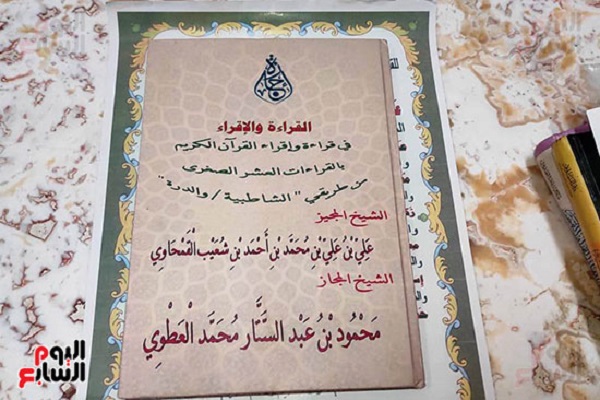 إجازة
القراءة والإقراء
في قراءة وإقراء القرآن الكريم
بالقراءات العشر الصغرى
من طريقي "الشاطبية / والدرة"
الشيخ المجيز
عَلِيّ بْنُ عَلِيّ بْنِ مُحَمَّدِ بْنِ أَحْمَدَ بْنِ شُعَيْبِ الْقَمْحَاوِي
الشيخ المجاز
مَحْمُودُ بْنُ عَبْدِ السَّتَّارِ مُحَمَّد الْعَطْوِي
اليوم السابع